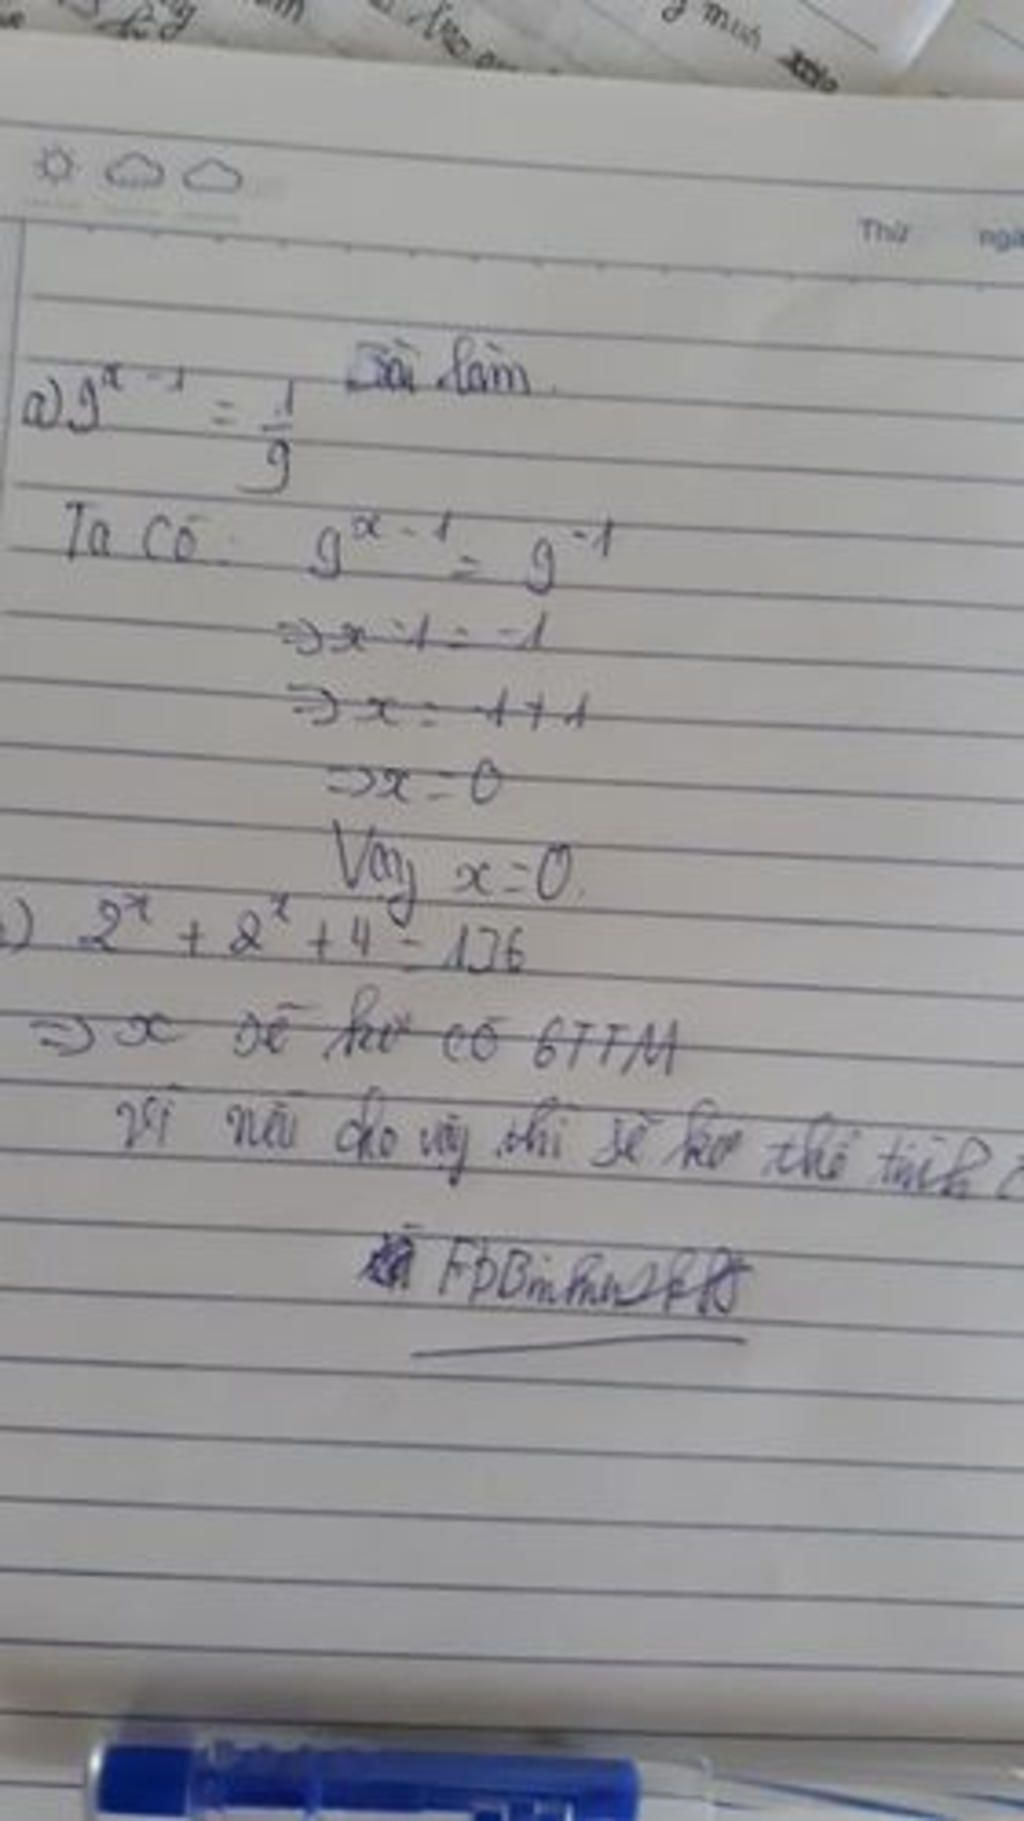 g minh
Thứ ngà
Bài làm.
a) 9^x-1 = 1/9
Ta có: 9^x-1 = 9^-1
=> x-1 = -1
=> x = -1+1
=> x = 0
Vậy x=0.
) 2^x + 2^x + 4 = 136
=> x sẽ ko có GTTM
vì nếu cho vậy thì sẽ ko thể tính